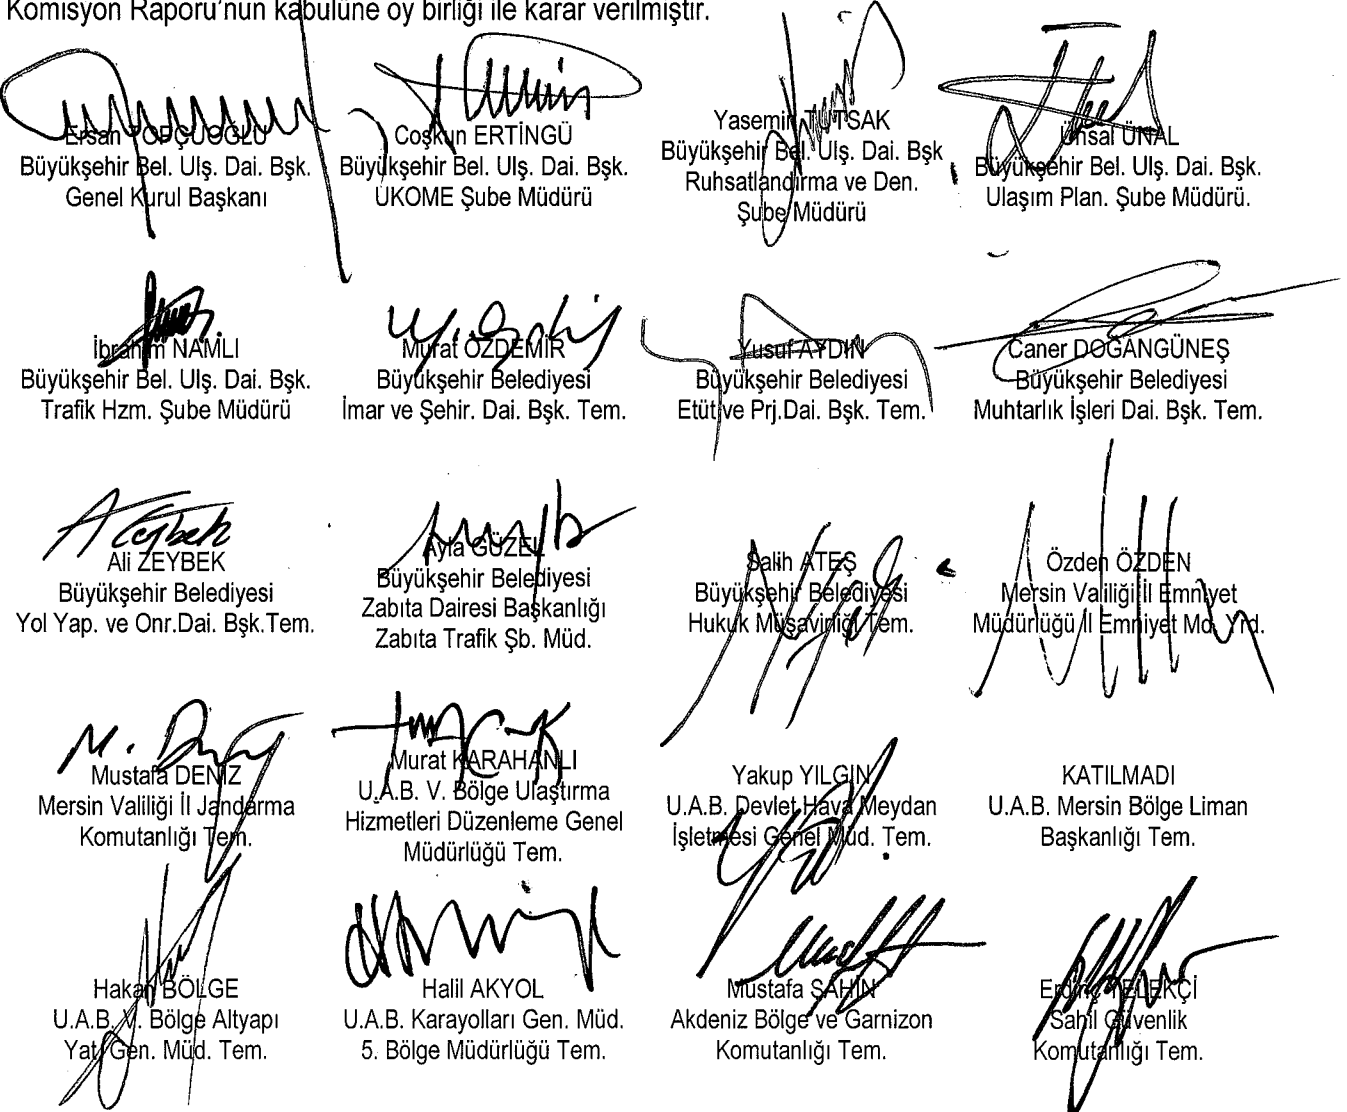 Komisyon Raporu'nun kabulüne oy birliği ile karar verilmiştir.
Ersan TOPÇUOĞLU
Büyükşehir Bel. Ulş. Dai. Bşk.
Genel Kurul Başkanı
Coşkun ERTİNGÜ
Büyükşehir Bel. Ulş. Dai. Bşk.
UKOME Şube Müdürü
Yasemin
Büyükşehir Bel. Ulş. Dai. Bşk
Ruhsatlandırma ve Den.
Şube Müdürü
Ünsal ÜNAL
Büyükşehir Bel. Ulş. Dai. Bşk.
Ulaşım Plan. Şube Müdürü.
İbrahim NAMLI
Büyükşehir Bel. Ulş. Dai. Bşk.
Trafik Hzm. Şube Müdürü
Murat ÖZDEMİR
Büyükşehir Belediyesi
İmar ve Şehir. Dai. Bşk. Tem.
Yusuf AYDIN
Büyükşehir Belediyesi
Etüt ve Prj.Dai. Bşk. Tem.
Caner DOĞANGÜNEŞ
Büyükşehir Belediyesi
Muhtarlık İşleri Dai. Bşk. Tem.
Ali ZEYBEK
Büyükşehir Belediyesi
Yol Yap. ve Onr.Dai. Bşk.Tem.
Ayla GÜZEL
Büyükşehir Belediyesi
Zabıta Dairesi Başkanlığı
Zabıta Trafik Şb. Müd.
Salih ATEŞ
Büyükşehir Belediyesi
Hukuk Müşavirliği Tem.
Özden ÖZDEN
Mersin Valiliği İl Emniyet
Müdürlüğü İl Emniyet Md. Yrd.
Mustafa DENİZ
Mersin Valiliği İl Jandarma
Komutanlığı Tem.
Murat KARAHANLI
U.A.B. V. Bölge Ulaştırma
Hizmetleri Düzenleme Genel
Müdürlüğü Tem.
Yakup YILGIN
U.A.B. Devlet Hava Meydan
İşletmesi Genel Müd. Tem.
KATILMADI
U.A.B. Mersin Bölge Liman
Başkanlığı Tem.
Hakan BÖLGE
U.A.B. V. Bölge Altyapı
Yat. Gen. Müd. Tem.
Halil AKYOL
U.A.B. Karayolları Gen. Müd.
5. Bölge Müdürlüğü Tem.
Mustafa ŞAHİN
Akdeniz Bölge ve Garnizon
Komutanlığı Tem.
Erdinç YELEKÇİ
Sahil Güvenlik
Komutanlığı Tem.